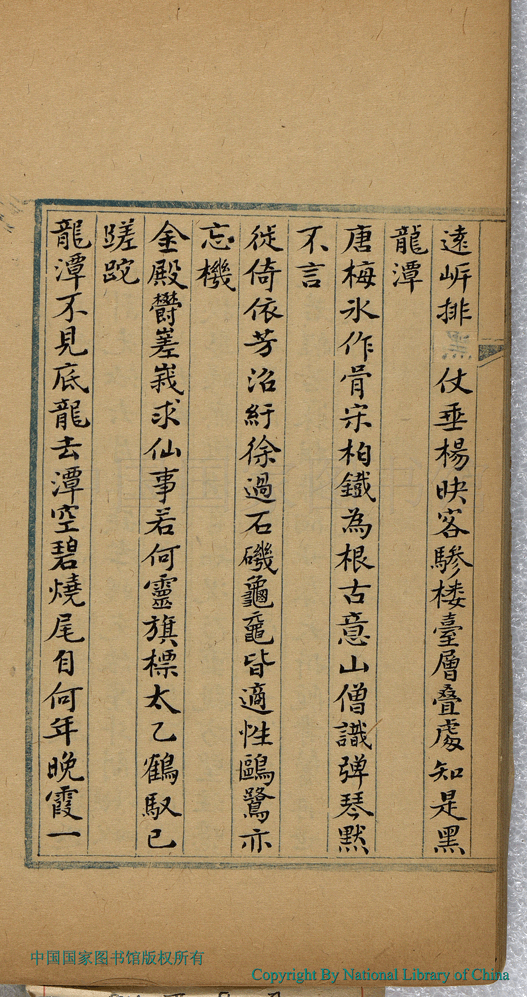 遠岍排仗垂楊映客驂楼臺層疊處知是黑
龍潭
唐梅氷作骨宋柏鐵為根古意山僧識弹琴默
不言
徙倚依芳沼紆徐過石磯龜黿皆適性鷗鷺亦
忘機
金殿欝嵳峩求仙事若何靈旗標太乙鶴馭已
蹉跎
龍潭不見底龍去潭空碧燒尾自何年晚霞一
中国国家图书馆版权所有
Copyright By National Library of China